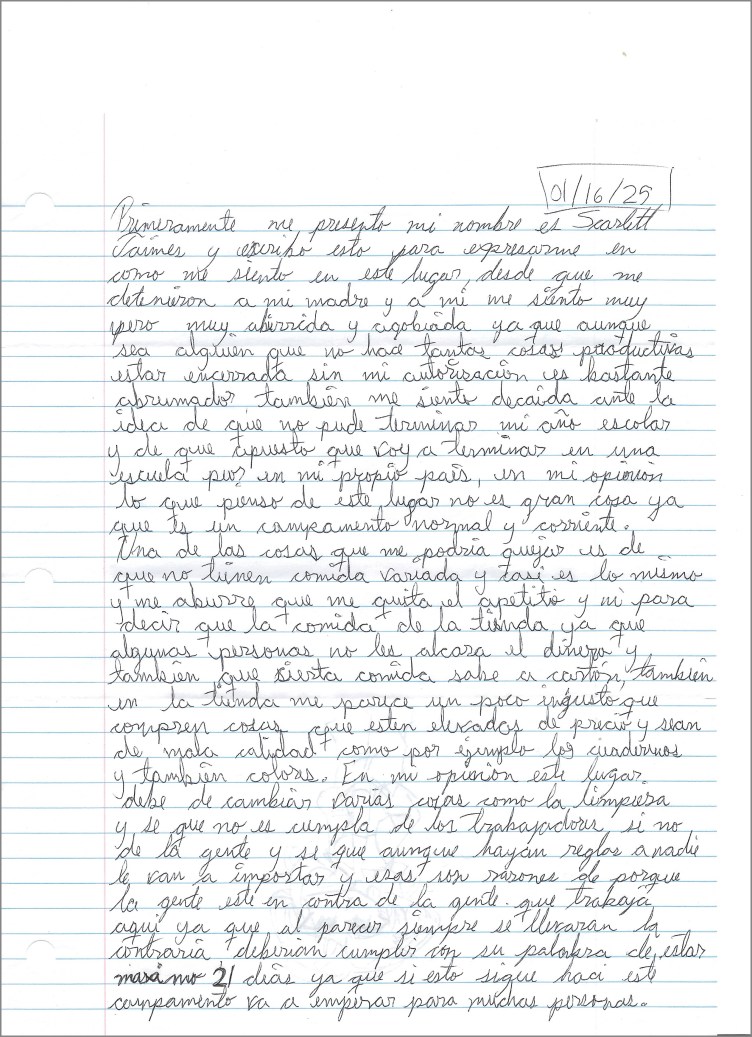 01/16/25
Primeramente me presento mi nombre es Scarlett
Jaimes y escribo esto para expresarme en
como me siento en este lugar, desde que me
detenieron a mi madre y a mi me siento muy
pero muy aburrida y agobiada ya que aunque
sea alguien que no hace tantas cosas productivas
estar encerrada sin mi autorización es bastante
abrumador también me siento decaida ante la
idea de que no pude terminar mi año escolar
y de que apuesto que voy a terminar en una
escuela peor en mi propio país, en mi opinión
lo que pienso de este lugar no es gran cosa ya
que es un campamento normal y corriente.
Una de las cosas que me podria quejar es de
que no tienen comida variada y casi es lo mismo
y me aburre que me quita el apetito y ni para
decir que la comida de la tienda ya que
algunas personas no les alcaza el dinero y
también que sierta comida sabe a cartón, también
en la tienda me parece un poco injusto que
compren cosas que esten elevados de precio y sean
de mala calidad como por ejemplo los cuadernos
y también colores. En mi opinión este lugar
debe de cambiar varias cosas como la limpieza
y se que no es cumpla de los trabajadores si no
de la gente y se que aunque hayan reglas a nadie
le van a importar y esas son razones de porque
la gente este en contra de la gente que trabaja
aqui ya que al parecer siempre se llevaran la
contraria, deberian cumplir con su palabra de estar
maximo 21 dias ya que si esto sigue haci este
campamento va a empeorar para muchas personas.